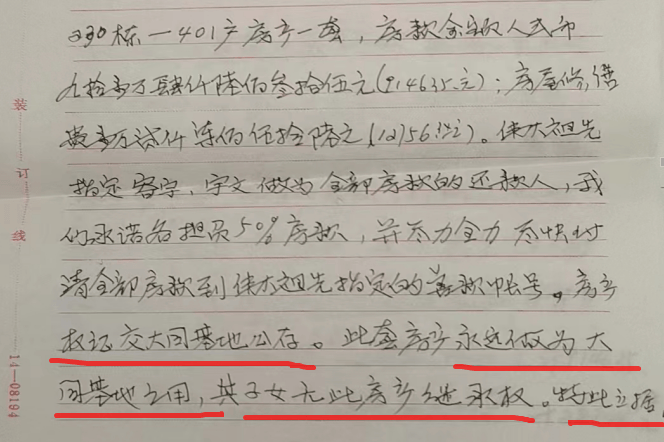 230栋一401户房产一套，房款余额人民币
九拾壹万肆仟陆佰叁拾伍元(914635.元)；房屋修,借
款壹万贰仟零佰伍拾陆元(12056.元)。伟大祖先
指定客字、宇文做为全部房款的还款人，我
们承诺各担负50%房款，并尽力全力尽快付
清全部房款到伟大祖先指定的善款帐号。房产
权证交大同基地公存。此套房产永远做为大
同基地之用，其子女无此房产继承权。特此立据
装
订
线
14—08194